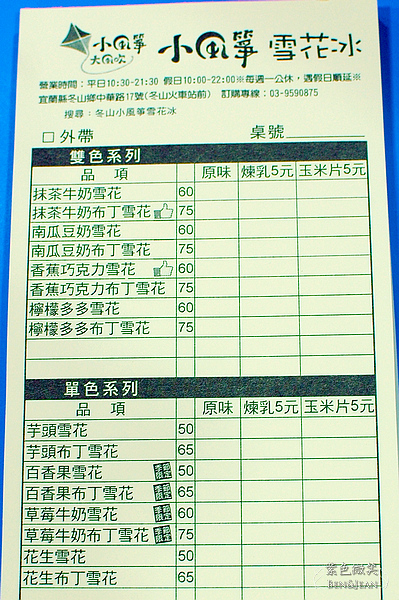 小風箏
大風吹
小風箏 雪花冰
營業時間：平日10:30-21:30 假日10:00-22:00※每週一公休，遇假日順延※
宜蘭縣冬山鄉中華路17號(冬山火車站前) 訂購專線：03-9590875
搜尋：冬山小風箏雪花冰
□外帶 桌號
雙色系列
品 項 原味 煉乳5元 玉米片5元
抹茶牛奶雪花 60
抹茶牛奶布丁雪花 75
南瓜豆奶雪花 60
南瓜豆奶布丁雪花 75
香蕉巧克力雪花 60
香蕉巧克力布丁雪花 75
檸檬多多雪花 60
檸檬多多布丁雪花 75
單色系列
品 項 原味 煉乳5元 玉米片5元
芋頭雪花 50
芋頭布丁雪花 65
百香果雪花 50
百香果布丁雪花 65
草莓牛奶雪花 60
草莓牛奶布丁雪花 75
花生雪花 50
花生布丁雪花 65
紫色微笑
BEN&JEAN